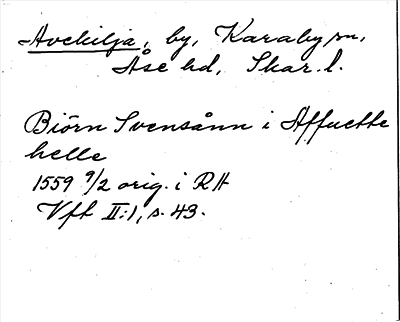 Avekilja, by, Karaby sn,
Åse hd, Skar. l.
Biörn Svensånn i Affuette
helle
1559 9/2 orig. i RA
Vft II:1, s. 43.